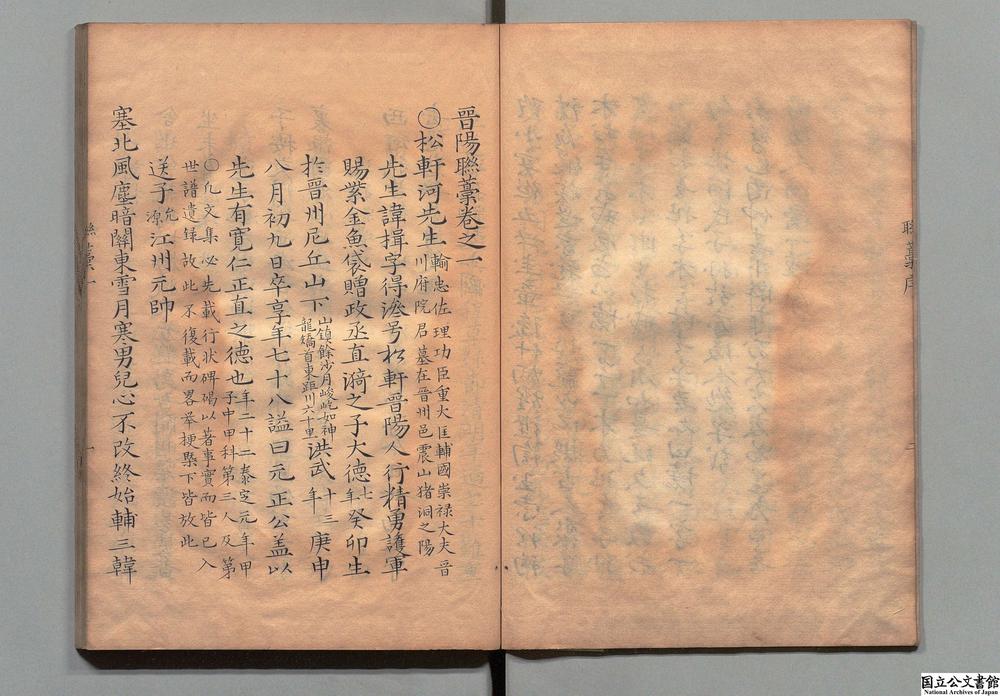 晉陽聯藁卷之一
○松軒河先生輸忠佐理功臣重大匡輔國崇祿大夫晉
川府院君墓在晉州邑震山猪洞之陽
先生諱楫字得濟号松軒晉陽人行精勇護軍
賜紫金魚袋贈政丞直漪之子大德七年癸卯生
於晉州尼丘山下山鎮餘沙月峻屹如神
龍矯首東距川六十里洪武十三年庚申
八月初九日卒享年七十八謚曰元正公盖以
先生有寬仁正直之德也年二十二泰定元年甲
子中甲科第三人及第
○凡文集必先載行状碑碣以著事實而皆已入
世譜遺録故此不復載而畧举梗槩下皆放此
送子允源江州元帥
塞北風塵暗關東雪月寒男兒心不改終始輔三韓
聯藁一
一
聯藁序
国立公文書館
National Archives of Japan